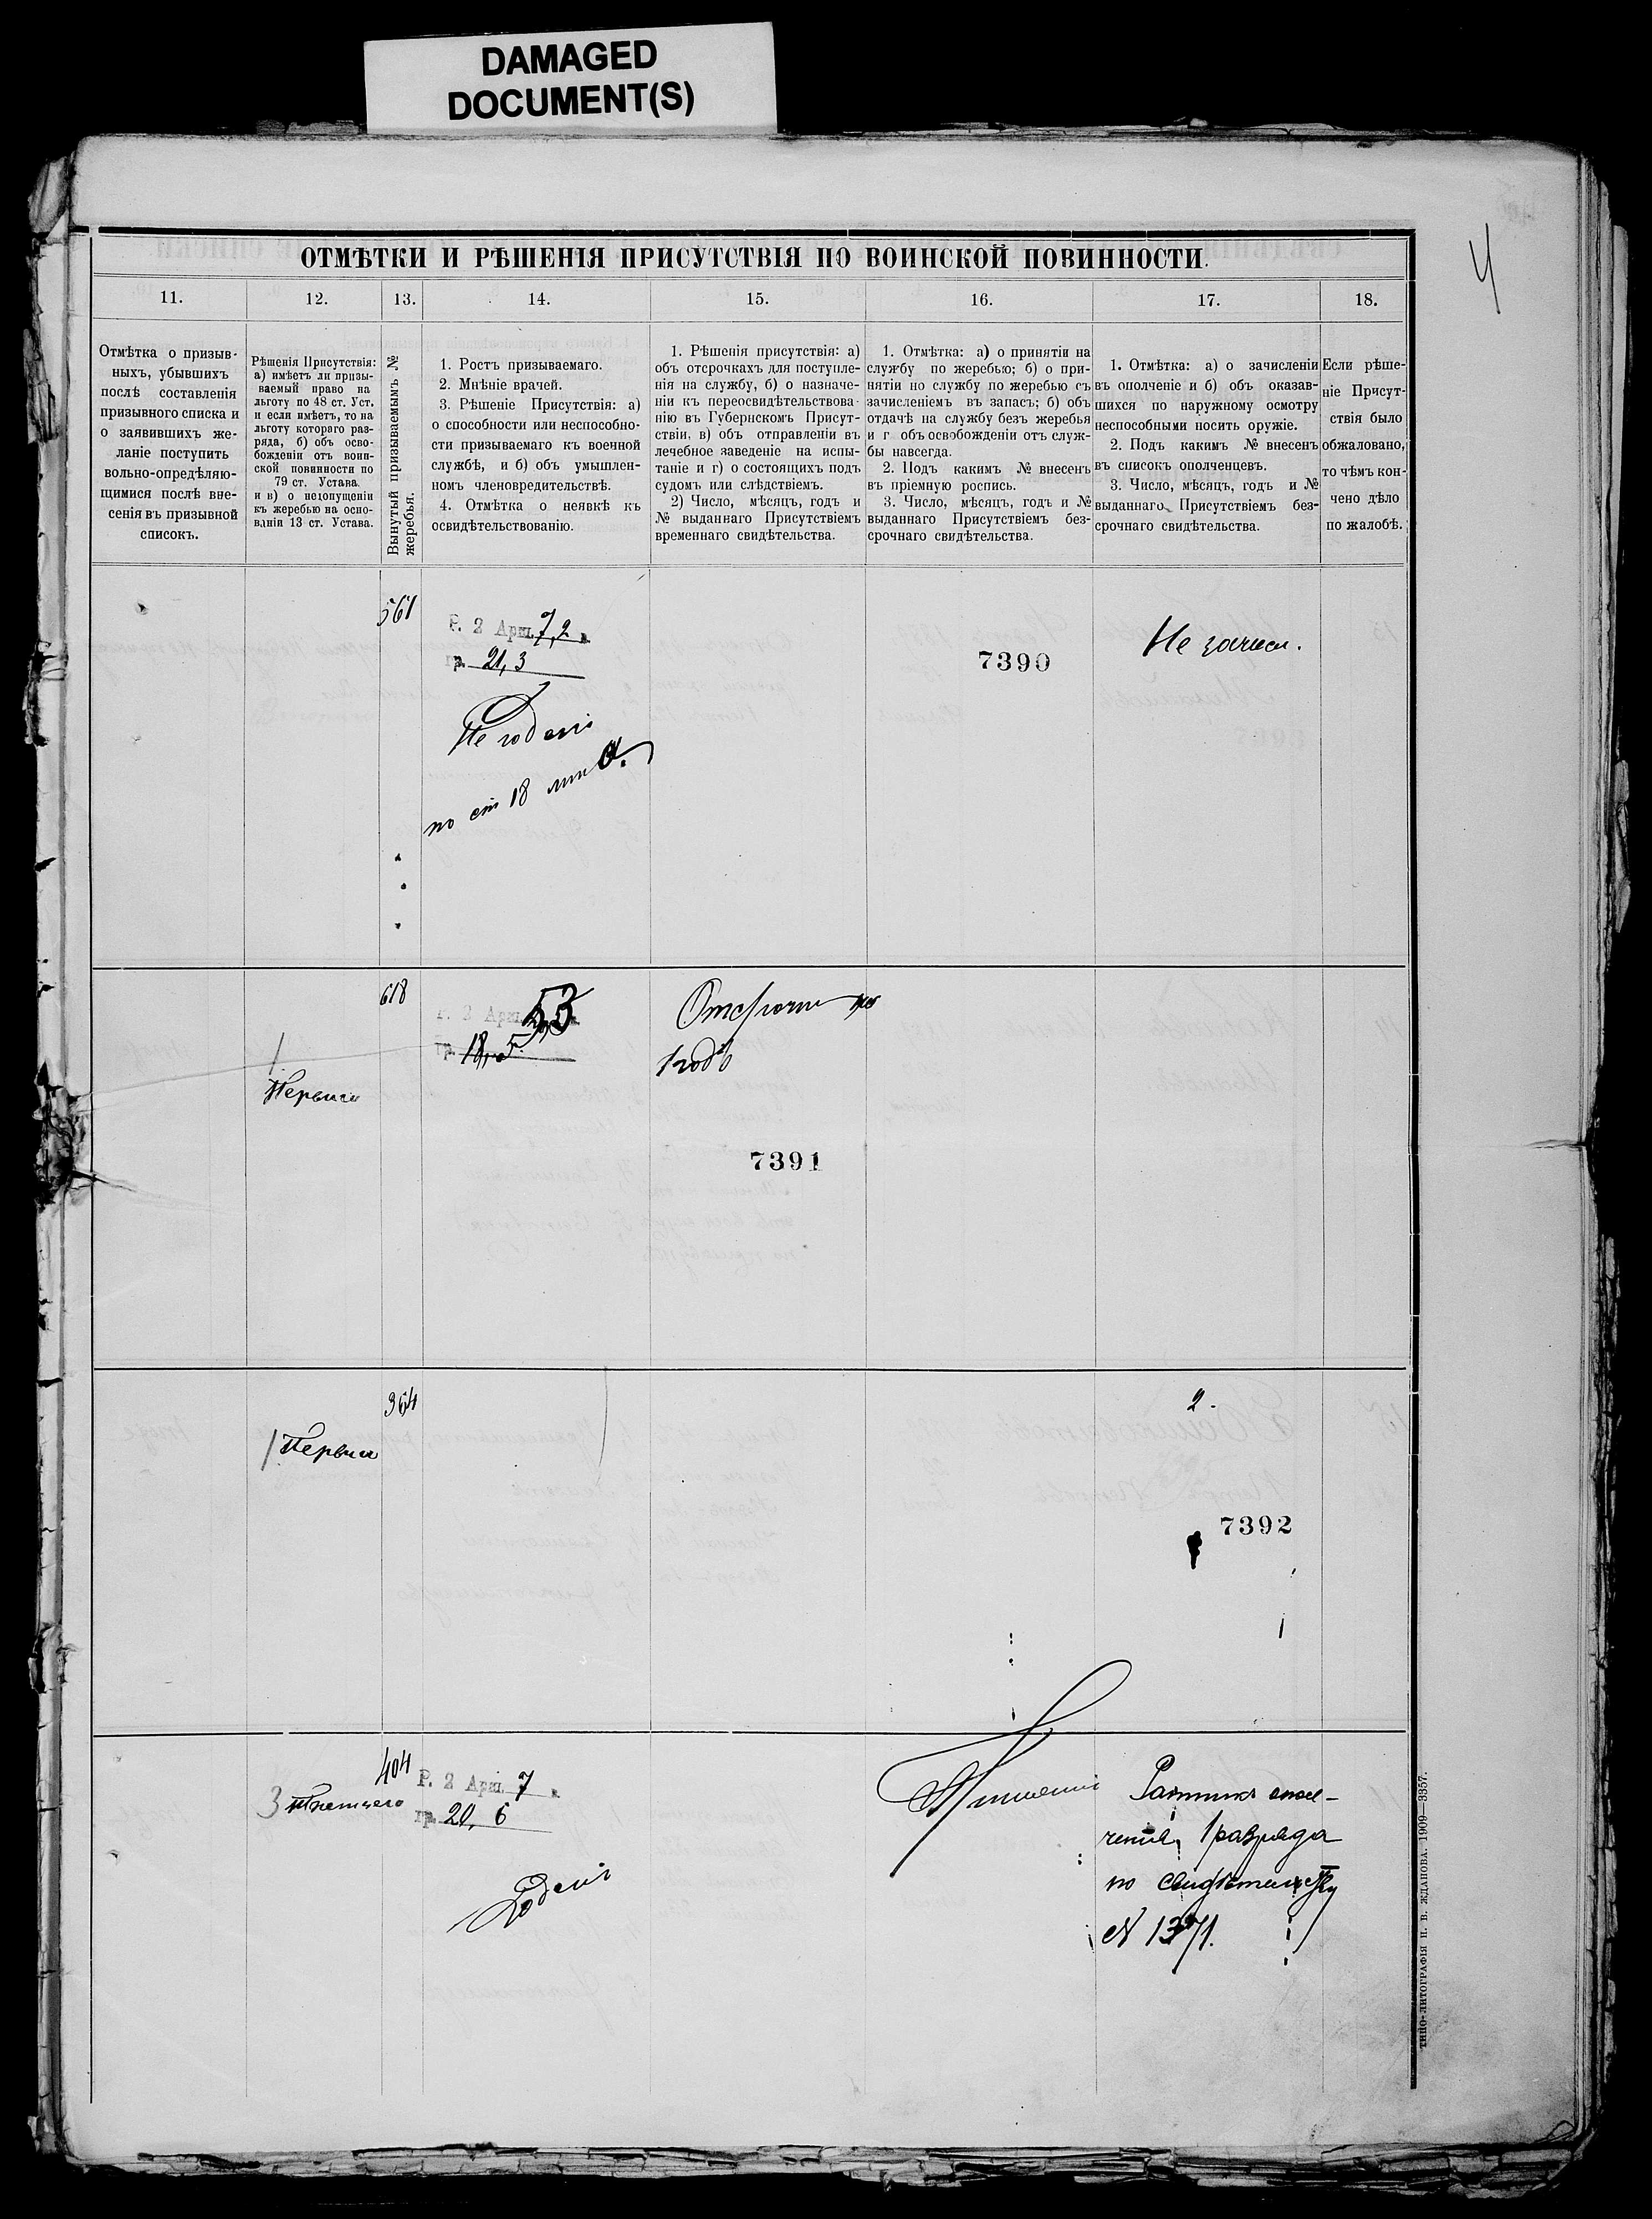 DAMAGED
DOCUMENT(S)
4
ОТМѢТКИ И РѢШЕНІЯ ПРИСУТСТВІЯ ПО ВОИНСКОЙ ПОВИННОСТИ.
11.
12.
13.
14.
15.
16.
17.
18.
Отмѣтка о призыв-
ныхъ, убывшихъ
послѣ составленія
призывного списка и
о заявившихъ же-
ланіе поступить
вольно-опредѣляю-
щимися послѣ вне-
сенія въ призывной
списокъ.
Рѣшенія Присутствія:
а) имѣетъ ли призы-
ваемый право на
льготу по 48 ст. Уст.
и если имѣетъ, то на
льготу котораго раз-
ряда, б) объ осво-
божденіи отъ воин-
ской повинности по
79 ст. Устава
и в) о недопущеніи
къ жеребью на осно-
ваніи 13 ст. Устава.
Вынутый призываемымъ №
жеребья.
1. Ростъ призываемаго.
2. Мнѣніе врачей.
3. Рѣшеніе Присутствія: а)
о способности или неспособно-
сти призываемаго къ военной
службѣ, и б) объ умышлен-
номъ членовредительствѣ.
4. Отмѣтка о неявкѣ къ
освидѣтельствованію.
1. Рѣшенія присутствія: а)
объ отсрочкахъ для поступле-
нія на службу, б) о назначе-
ніи къ переосвидѣтельствова-
нію въ Губернскомъ Присут-
ствіи, в) объ отправленіи въ
лечебное заведеніе на испы-
таніе и г) о состоящихъ подъ
судомъ или слѣдствіемъ.
2) Число, мѣсяцъ, годъ и
№ выданнаго Присутствіемъ
временнаго свидѣтельства.
1. Отмѣтка: а) о принятіи на
службу по жеребью; б) о при-
нятіи но службу по жеребью съ
зачисленіемъ въ запасъ; б) объ
отдачѣ на службу безъ жеребья
и г объ освобожденіи отъ служ-
бы навсегда.
2. Подъ какимъ № внесенъ
въ пріемную роспись.
3. Число, мѣсяцъ, годъ и №
выданнаго Присутствіемъ без-
срочнаго свидѣтельства.
1. Отмѣтка: а) о зачисленіи
въ ополченіе и б) объ оказав-
шихся по наружному осмотру
неспособными носить оружіе.
2. Подъ какимъ № внесенъ
въ списокъ ополченцевъ.
3. Число, мѣсяцъ, годъ и №
выданнаго Присутствіемъ без-
срочнаго свидѣтельства.
Если рѣше-
ніе Присут-
ствія было
обжаловано,
то чѣмъ кон-
чено дѣло
по жалобѣ.
561
Р. 2 Арш. 7,2 в.
гр. 21,3
Не годенъ
по ст 18 лит
7390
Не зачисл.
618
1
Первый
Р. 2 Арш. 53
гр. 18, 5
Отсрочи на
1 годъ
7391
364
1 Первый
2.
7392
404
3 Третьяго
Р. 2 Арш. 7 в.
гр. 20, 6
Годенъ
Ратникъ опол-
ченія 1 разряда
по свидѣтельству
N 1371.
ТИПО-ЛИТОГРАФІЯ И. В. ЖДАНОВА. 1909—3357.